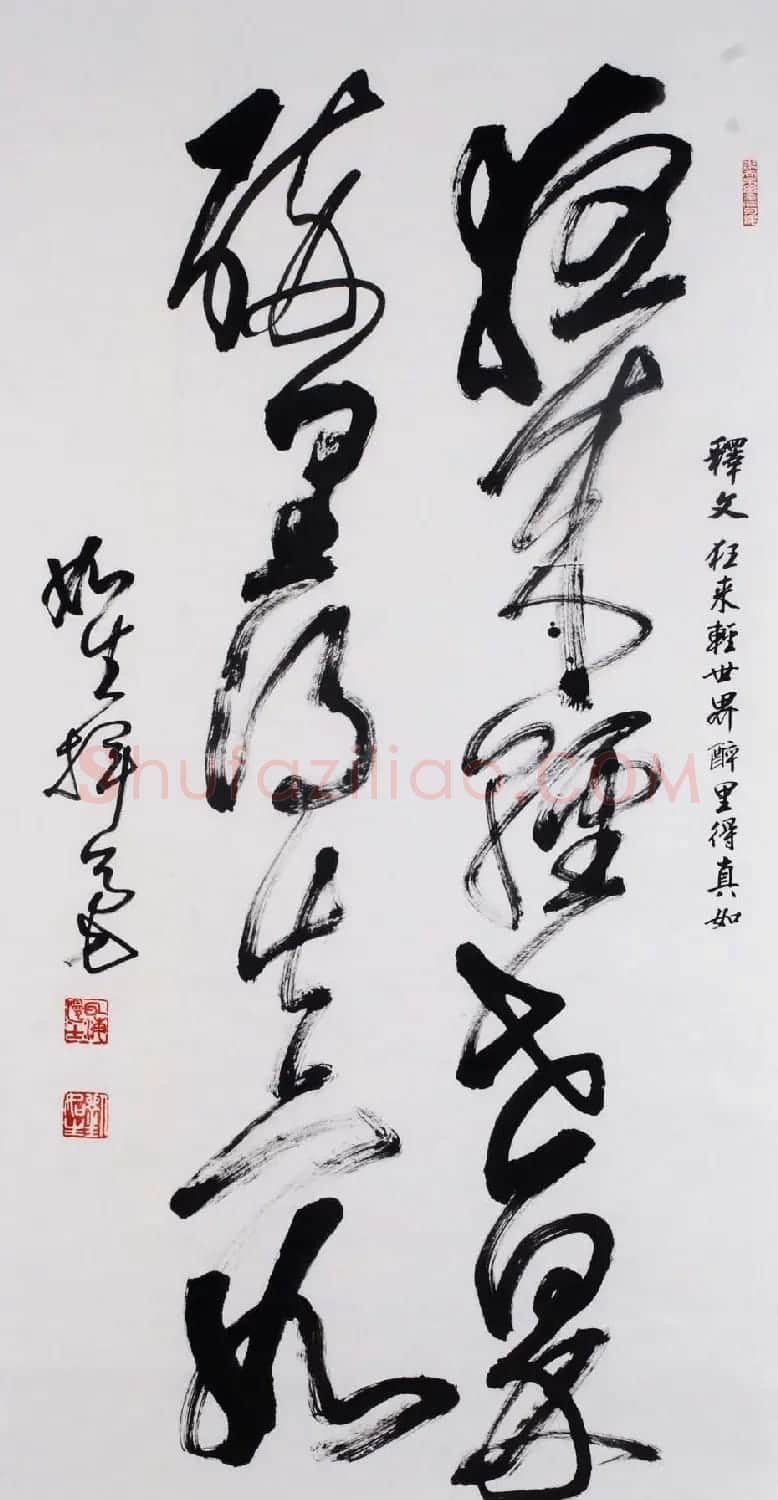 釋文 狂来輕世界醉里得真如
狂来輕世界
醉里得真如
如生揮毫
Shufaziliao.COM